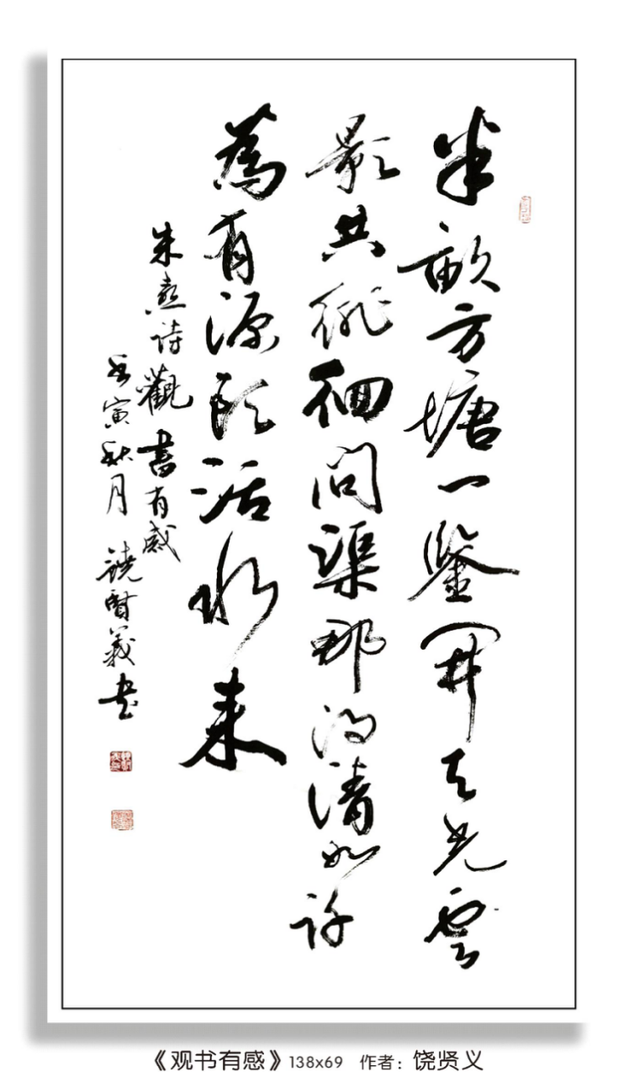 半畝方塘一鑒開天光雲
影共徘徊問渠那得清如許
為有源頭活水來
朱熹詩觀書有感
壬寅秋月 饒賢義书
《观书有感》138x69 作者：饶贤义